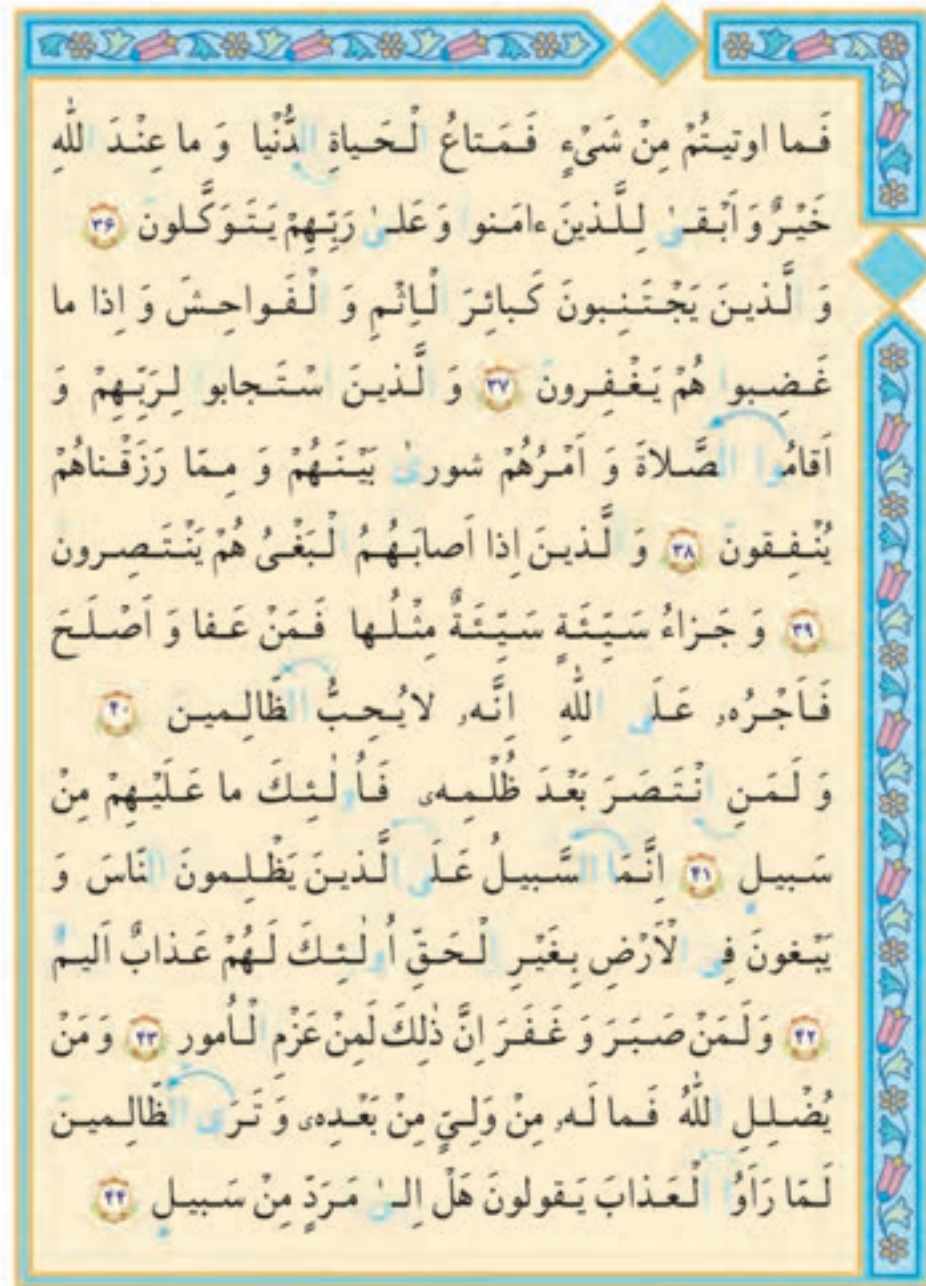 فَما اوتیتُمْ مِنْ شَیْءٍ فَمَتاعُ الْحَیاةِ الدُّنْیا وَ ما عِنْدَ اللّٰهِ
خَیْرٌ وَ اَبْقیٰ لِلَّذینَ ءامَنوا وَ عَلیٰ رَبِّهِمْ یَتَوَکَّلونَ ۳۶
وَ الَّذینَ یَجْتَنِبونَ کَبائِرَ الْاِثْمِ وَ الْفَواحِشَ وَ اِذا ما
غَضِبوا هُمْ یَغْفِرونَ ۳۷ وَ الَّذینَ اسْتَجابوا لِرَبِّهِمْ وَ
اَقامُوا الصَّلاةَ وَ اَمْرُهُمْ شوریٰ بَیْنَهُمْ وَ مِمّا رَزَقْناهُمْ
یُنْفِقونَ ۳۸ وَ الَّذینَ اِذا اَصابَهُمُ الْبَغْیُ هُمْ یَنْتَصِرونَ
۳۹ وَ جَزاءُ سَیِّئَةٍ سَیِّئَةٌ مِثْلُها فَمَنْ عَفا وَ اَصْلَحَ
فَاَجْرُهۥ عَلَی اللّٰهِ اِنَّهۥ لایُحِبُّ الظّالِمینَ ۴۰
وَ لَمَنِ انْتَصَرَ بَعْدَ ظُلْمِهۦ فَاُولٰئِکَ ما عَلَیْهِمْ مِنْ
سَبیلٍ ۴۱ اِنَّمَا السَّبیلُ عَلَی الَّذینَ یَظْلِمونَ النّاسَ وَ
یَبْغونَ فِی الْاَرْضِ بِغَیْرِ الْحَقِّ اُولٰئِکَ لَهُمْ عَذابٌ اَلیمٌ
۴۲ وَ لَمَنْ صَبَرَ وَ غَفَرَ اِنَّ ذٰلِکَ لَمِنْ عَزْمِ الْاُمورِ ۴۳ وَ مَنْ
یُضْلِلِ اللّٰهُ فَما لَهۥ مِنْ وَلِیٍّ مِنْ بَعْدِهۦ وَ تَرَی الظّالِمینَ
لَمّا رَاَوُا الْعَذابَ یَقولونَ هَلْ اِلیٰ مَرَدٍّ مِنْ سَبیلٍ ۴۴